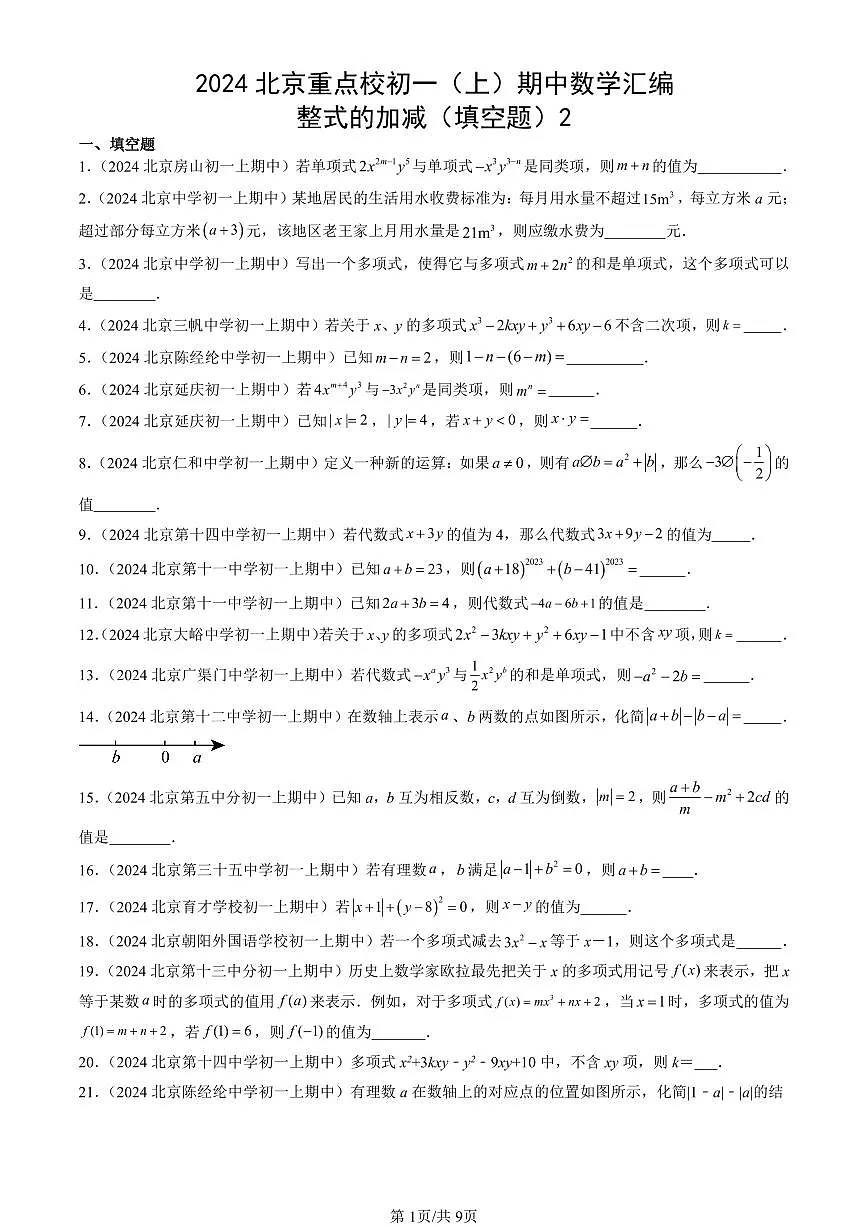 2024 北京重点校初一（上）期中数学汇编
整式的加减（填空题）2
一、填空题
1.（2024 北京房山初一上期中）若单项式 2x^{2m−1}y^5 与单项式 −x^3y^{3−n} 是同类项，则 m+n 的值为___________.
2.（2024 北京中学初一上期中）某地居民的生活用水收费标准为：每月用水量不超过15m³，每立方米 a 元；
超过部分每立方米(a+3)元，该地区老王家上月用水量是 21m³，则应缴水费为________元.
3.（2024 北京中学初一上期中）写出一个多项式，使得它与多项式 m+2n² 的和是单项式，这个多项式可以
是________.
4.（2024 北京三帆中学初一上期中）若关于 x、y 的多项式 x³−2kxy+y³+6xy−6 不含二次项，则 k=_____.
5.（2024 北京陈经纶中学初一上期中）已知 m−n=2，则 1−n−(6−m)=__________.
6.（2024 北京延庆初一上期中）若 4x^{m+4}y³ 与 −3x²y^n 是同类项，则 m^n=______.
7.（2024 北京延庆初一上期中）已知|x|=2，|y|=4，若 x+y<0，则 x·y=______.
8.（2024 北京仁和中学初一上期中）定义一种新的运算：如果 a≠0，则有 a∅b=a²+|b|，那么 −3∅(−1/2) 的
值________.
9.（2024 北京第十四中学初一上期中）若代数式 x+3y 的值为 4，那么代数式 3x+9y−2 的值为_____.
10.（2024 北京第十一中学初一上期中）已知 a+b=23，则 (a+18)^{2023}+(b−41)^{2023}=______.
11.（2024 北京第十一中学初一上期中）已知 2a+3b=4，则代数式 −4a−6b+1 的值是________.
12.（2024 北京大峪中学初一上期中）若关于 x、y 的多项式 2x²−3kxy+y²+6xy−1 中不含 xy 项，则 k=______.
13.（2024 北京广渠门中学初一上期中）若代数式 −x^a y³ 与 1/2 x²y^b 的和是单项式，则 −a²−2b=______.
14.（2024 北京第十二中学初一上期中）在数轴上表示 a、b 两数的点如图所示，化简|a+b|−|b−a|=_____.
b 0 a
15.（2024 北京第五中分初一上期中）已知 a，b 互为相反数，c，d 互为倒数，|m|=2，则 (a+b)/m −m²+2cd 的
值是________.
16.（2024 北京第三十五中学初一上期中）若有理数 a，b 满足|a−1|+b²=0，则 a+b=____.
17.（2024 北京育才学校初一上期中）若|x+1|+(y−8)²=0，则 x−y 的值为______.
18.（2024 北京朝阳外国语学校初一上期中）若一个多项式减去 3x²−x 等于 x－1，则这个多项式是______.
19.（2024 北京第十三中分初一上期中）历史上数学家欧拉最先把关于 x 的多项式用记号 f(x) 来表示，把 x
等于某数 a 时的多项式的值用 f(a) 来表示．例如，对于多项式 f(x)=mx³+nx+2，当 x=1 时，多项式的值为
f(1)=m+n+2，若 f(1)=6，则 f(−1) 的值为_______.
20.（2024 北京第十四中学初一上期中）多项式 x²+3kxy﹣y²﹣9xy+10 中，不含 xy 项，则 k＝___.
21.（2024 北京陈经纶中学初一上期中）有理数 a 在数轴上的对应点的位置如图所示，化简|1﹣a|﹣|a|的结
第 1页/共 9页